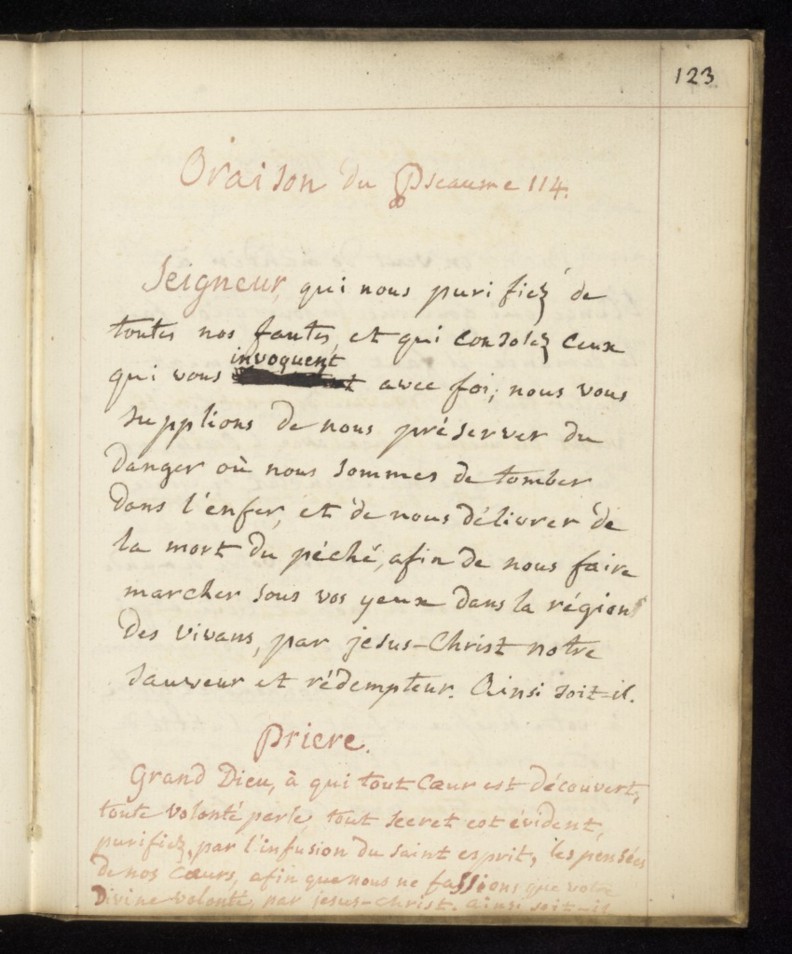 123
Oraison du Pseaume 114.
Seigneur, qui nous purifiez de
toutes nos fautes, et qui consolez ceux
invoquent
qui vous avec foi; nous vous
supplions de nous préserver du
danger où nous sommes de tomber
dans l'enfer, et de nous délivrer de
la mort du péché, afin de nous faire
marcher sous vos yeux dans la région
des vivans, par jesus-Christ notre
sauveur et rédempteur. Ainsi soit-il.
Priere.
Grand Dieu, à qui tout Cœur est découvert,
toute volonté parle, tout secret est évident,
purifiez, par l'infusion du saint esprit, les pensées
de nos Cœurs, afin que nous ne fassions que votre
Divine volonté, par jesus-Christ. ainsi soit-il